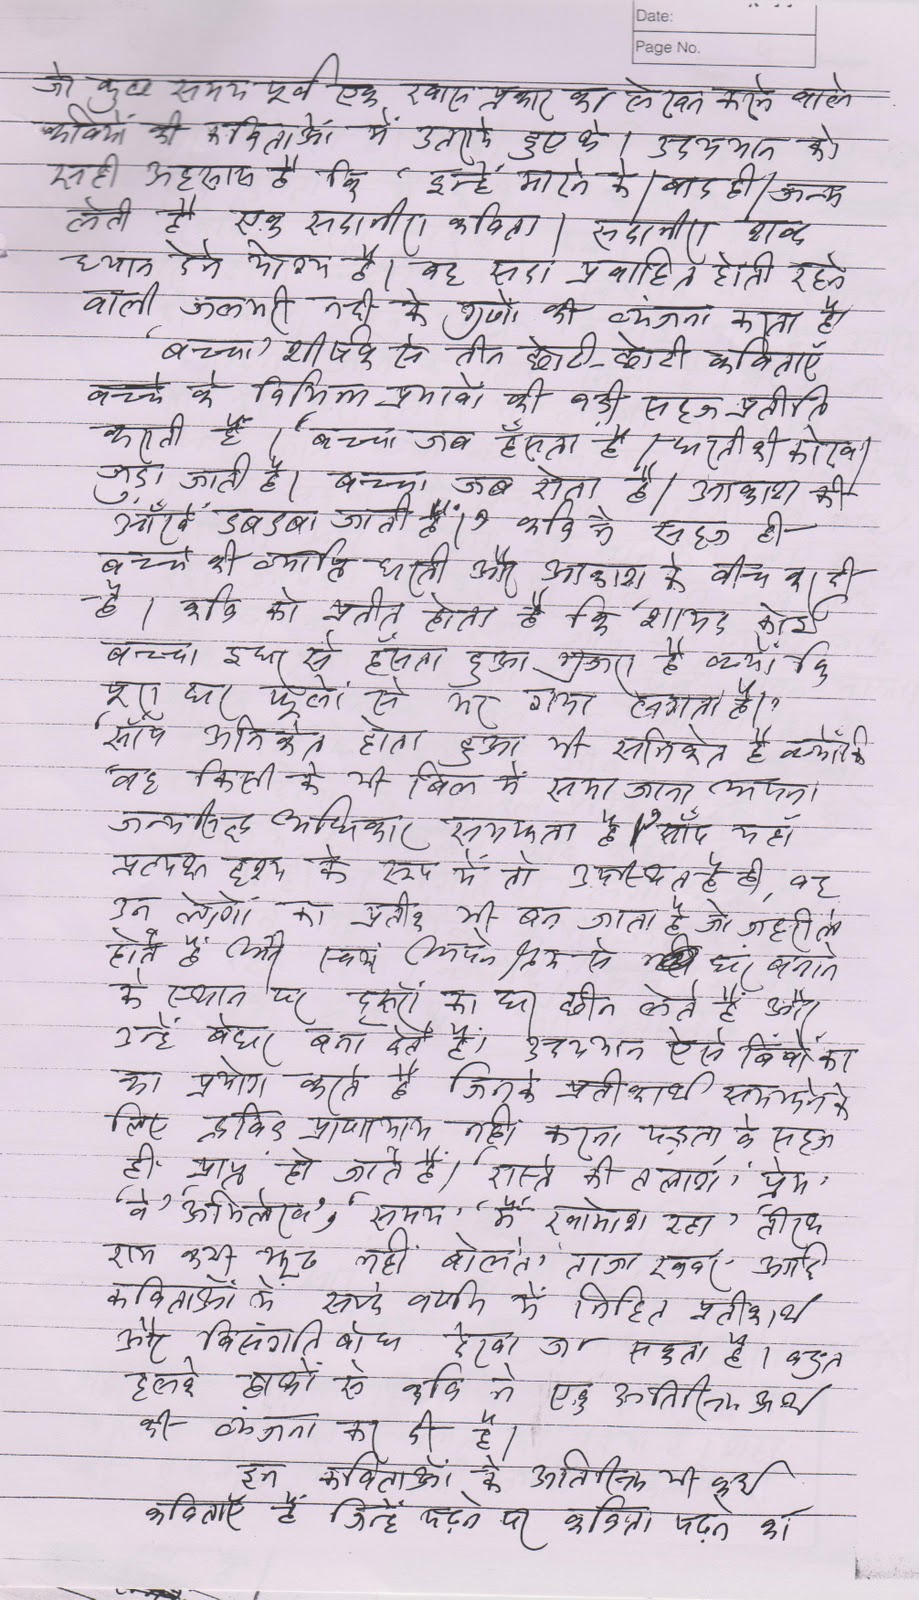 Date:
Page No.
जो कुछ समय पूर्व एक खास प्रकार का लेखन करने वाले
कवियों की कविताओं में उतराये हुए थे। उदयभान को
सही अहसास है कि 'इन्हें मारने के/बाद ही/जन्म
लेती है एक सदानीरा कविता। सदानीरा शब्द
ध्यान देने योग्य है। वह सदा प्रवाहित होती रहने
वाली जलभरी नदी के गुणों की व्यंजना करता है।
'बच्चा' शीर्षक से तीन छोटी-छोटी कविताएँ
बच्चे के विभिन्न प्रभावों की बड़ी सहज प्रतीति
कराती हैं। 'बच्चा जब हँसता है/धरती की कोख/
जुड़ा जाती है। बच्चा जब रोता है/आकाश की
आँखें डबडबा जाती हैं।' कवि ने सहज ही
बच्चे की व्याप्ति धरती और आकाश के बीच कर दी
है। कवि को प्रतीत होता है कि 'शायद कोई
बच्चा इधर से हँसता हुआ गुजरा है क्यों कि
पूरा घर फूलों से भर गया लगता है।'
'साँप अनिकेत होता हुआ भी सनिकेत है क्योंकि
वह किसी के भी बिल में समा जाना अपना
जन्मसिद्ध अधिकार समझता है।' साँप यहाँ
प्रत्यक्ष दृश्य के रूप में तो उपस्थित है ही, वह
उन लोगों का प्रतीक भी बन जाता है जो जहरीले
होते हैं और स्वयं अपने श्रम से घर बनाने
के स्थान पर दूसरों का घर छीन लेते हैं और
उन्हें बेघर बना देते हैं। उदयभान ऐसे बिंबों का
का प्रयोग करते हैं जिनके प्रतीकार्थ समझने के
लिए द्रविड़ प्राणायाम नहीं करना पड़ता वे सहज
ही प्राप्त हो जाते हैं। 'रास्ते की तलाश' 'प्रेम'
'वे' 'अभिलेख', 'समय' 'मैं खामोश रहा'
राम कभी झूठ नहीं बोलते' 'ताजा खबर' आदि
कविताओं में सपाट वर्णन में निहित प्रतीकार्थ
और विसंगति बोध देखा जा सकता है। बहुत
हलके हाथों से कवि ने एक अतिरिक्त अर्थ
की व्यंजना कर दी है।
इन कविताओं के अतिरिक्त भी कई
कविताएँ हैं जिन्हें पढ़ने पर कविता पढ़ने का